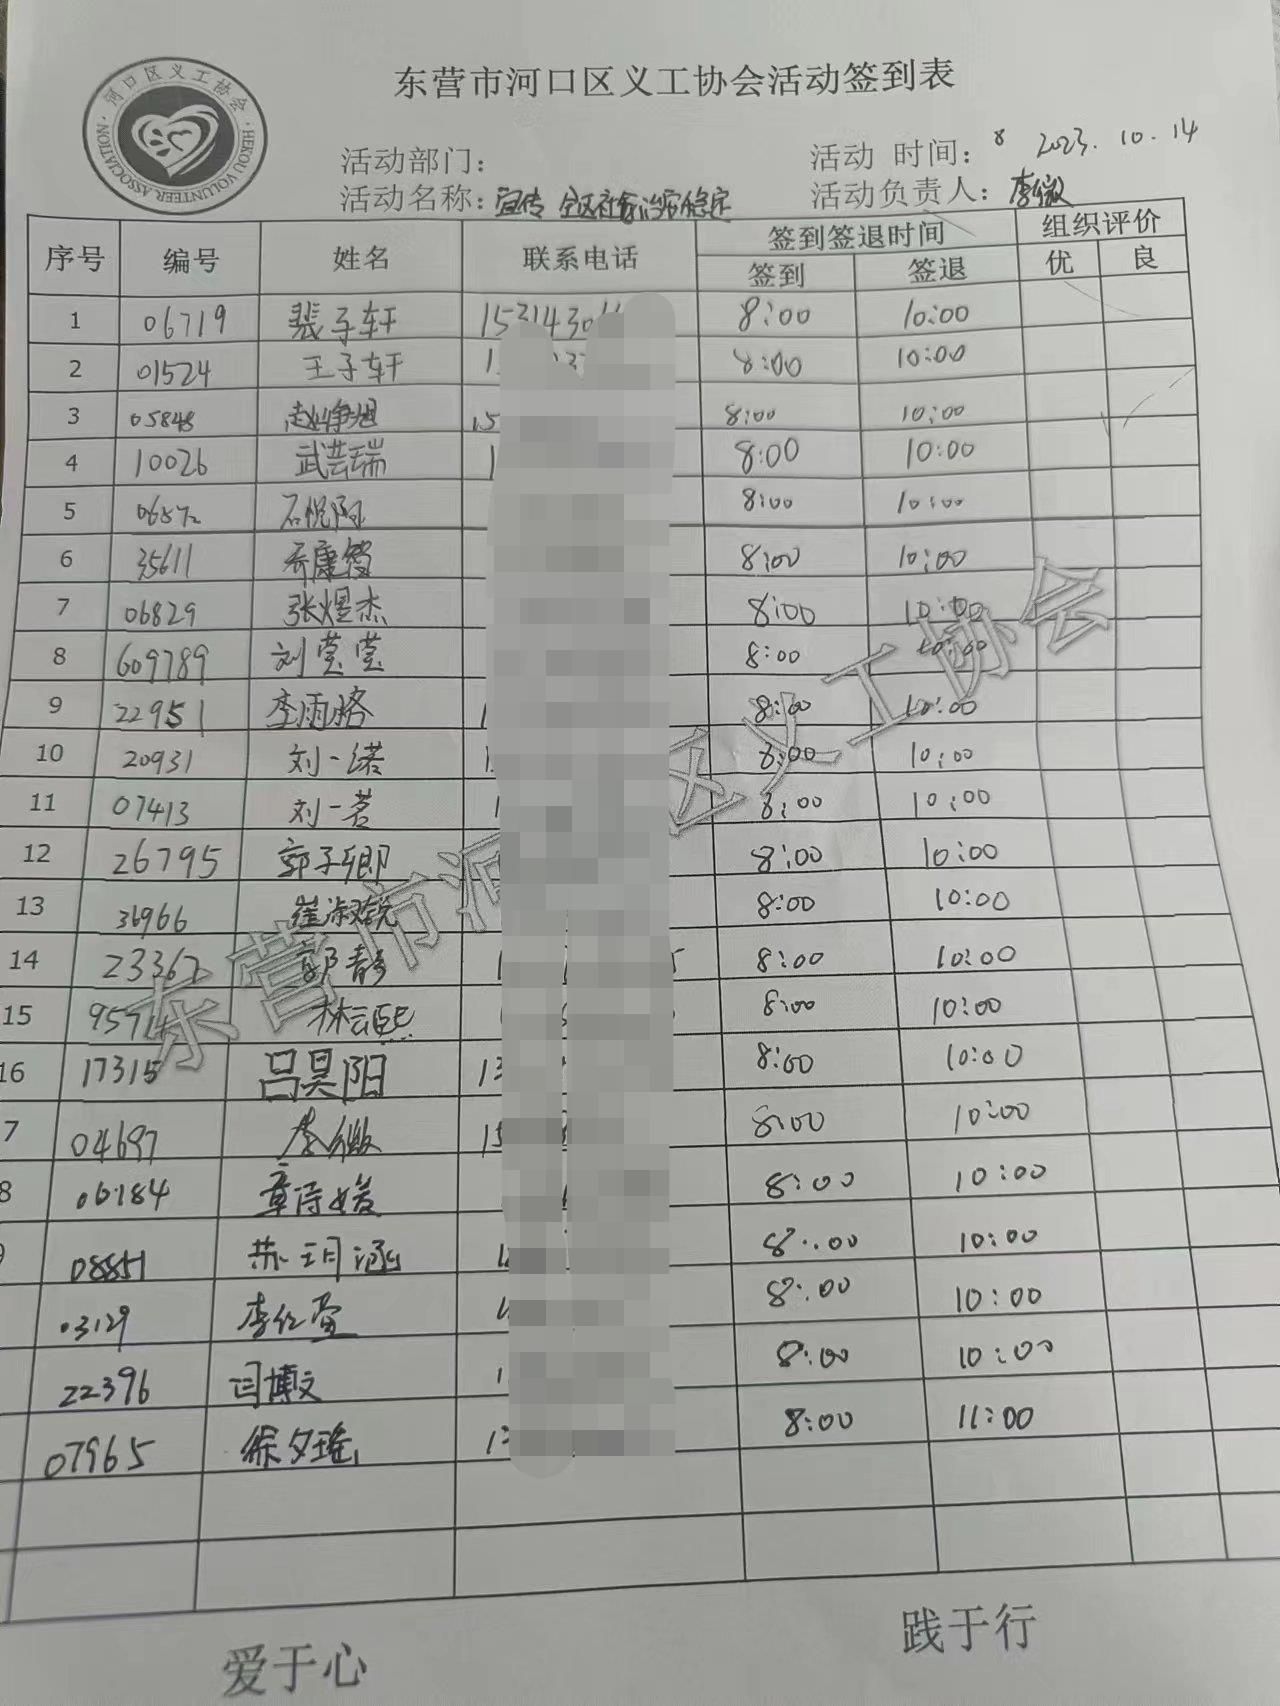 东营市河口区义工协会活动签到表
河口区义工协会
HEKOU VOLUNTEER ASSOCIATION
活动部门： 活动 时间：8 2023.10.14
活动名称：宣传全区社会治安稳定 活动负责人：李缴
序号 编号 姓名 联系电话 签到签退时间 组织评价
签到 签退 优 良
1 06719 裴子轩 15214301 8:00 10:00
2 01524 王子轩 1 8:00 10:00
3 05848 赵峥旭 15 8:00 10:00
4 10026 武芸瑞 1 8:00 10:00
5 06572 石悦阿 8:00 10:00
6 35611 乔康 8:00 10:00
7 06829 张煜杰 8:00 10:00
8 609789 刘莹莹 8:00 10:00
9 22951 李雨 1 8:00 10:00
10 20931 刘一诺 8:00 10:00
11 07413 刘一茗 1 8:00 10:00
12 26795 郭子卿 8:00 10:00
13 36966 崔淑锐 8:00 10:00
14 23362 郭静 1 5 8:00 10:00
15 95714 林云熙 8:00 10:00
16 17315 吕昊阳 13 8:00 10:00
7 04697 李 15 8:00 10:00
8 06184 章诗媛 8:00 10:00
9 08851 苏玥涵 1 8:00 10:00
03129 李红萱 1 8:00 10:00
22396 闫博文 1 8:00 10:00
07965 徐夕瑶 13 8:00 11:00
东营市河口区义工协会
爱于心 践于行